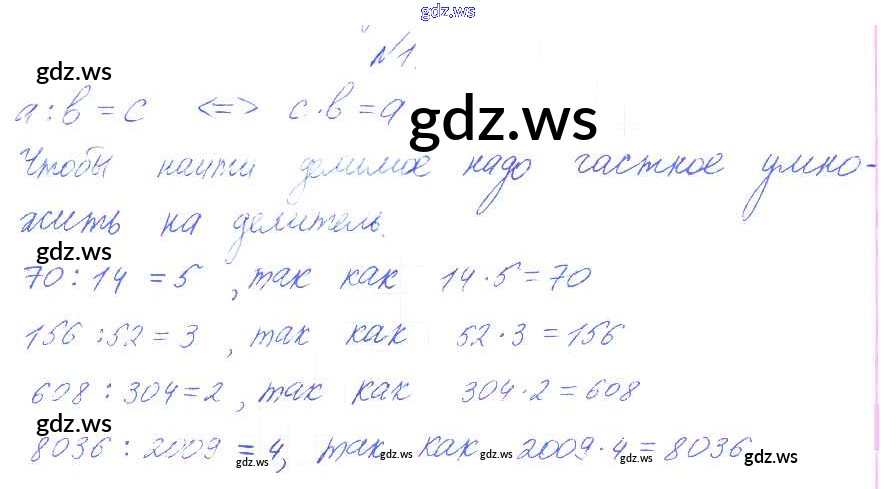 gdz.ws
№1.
gdz.ws
a : b = c <=> c · b = a
gdz.ws
Чтобы найти делимое надо частное умно-
жить на делитель.
gdz.ws
70 : 14 = 5 , так как 14 · 5 = 70
156 : 52 = 3 , так как 52 · 3 = 156
608 : 304 = 2 , так как 304 · 2 = 608
gdz.ws
8036 : 2009 = 4, так как 2009 · 4 = 8036
gdz.ws gdz.ws gdz.ws gdz.ws gdz.ws